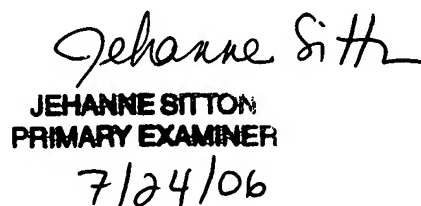 Jehanne Sitton
JEHANNE SITTON
PRIMARY EXAMINER
7/24/06